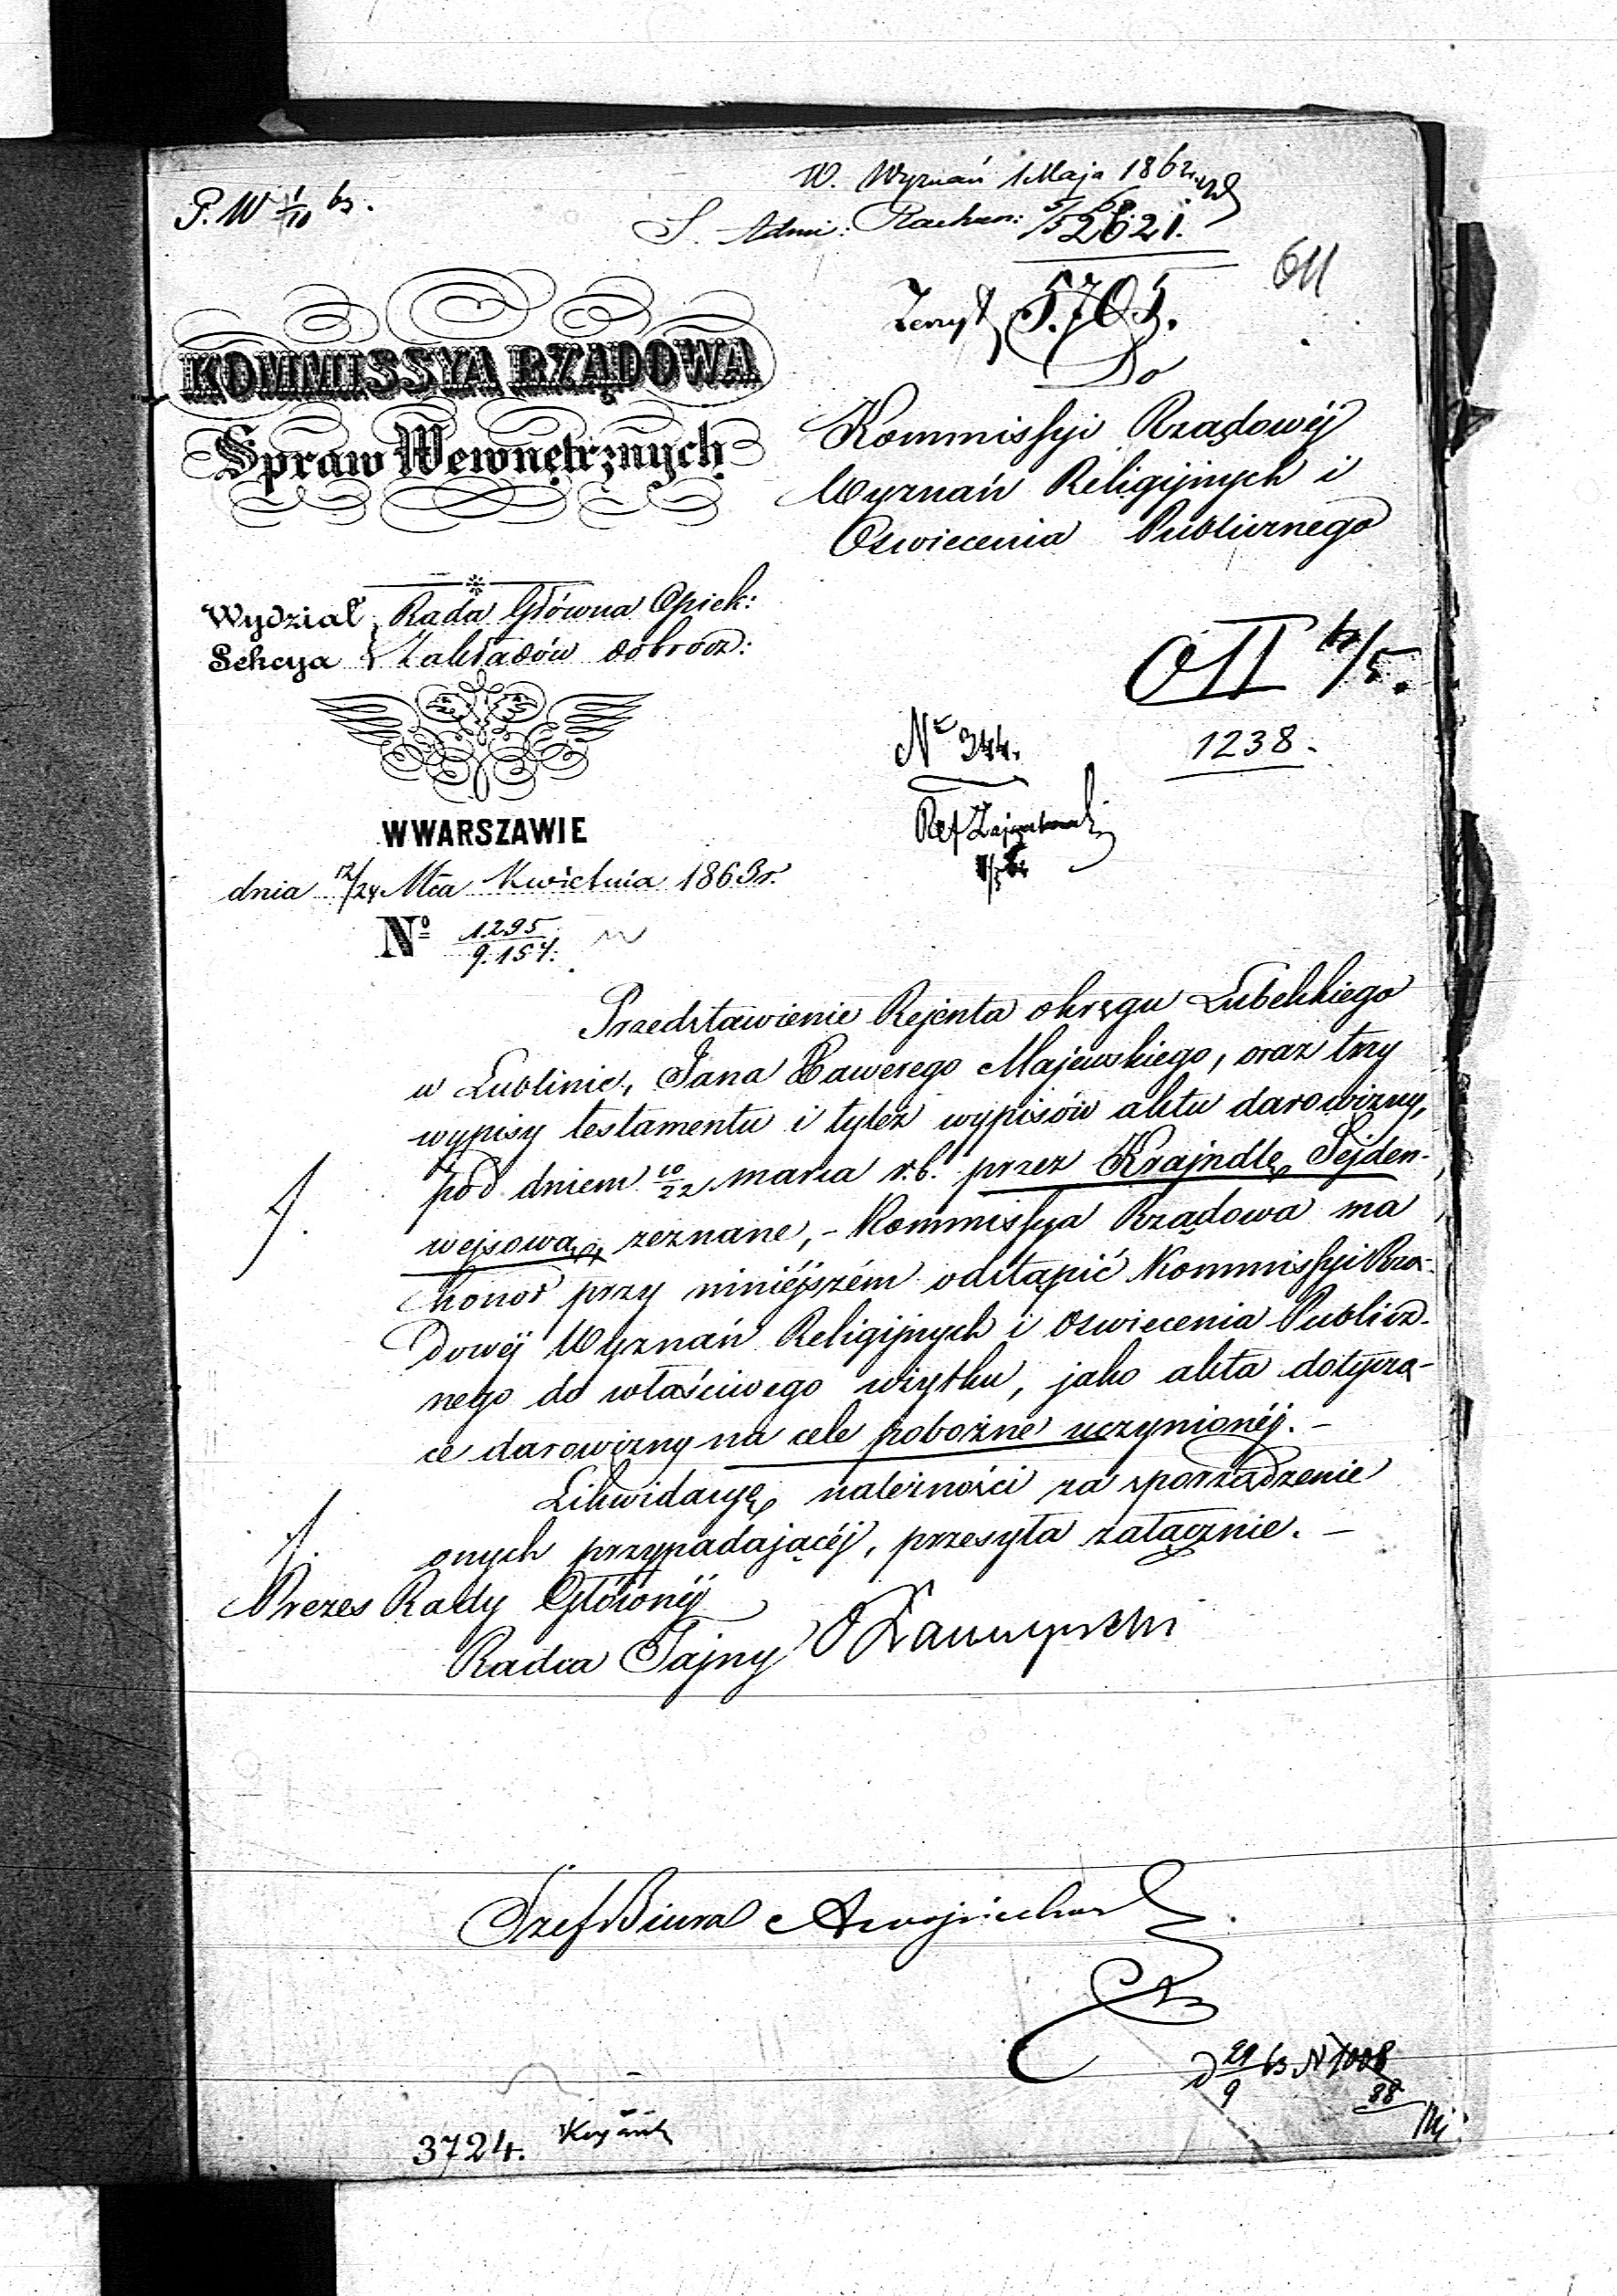 P. W 1/10 63.
W. Wyznań 1 Maja 1863
S. Adm: Rachun: 5/5 63
2621.
611
5.705.
KOMMISSYA RZĄDOWA
Spraw Wewnętrznych
Do
Kommissyi Rządowéj
Wyznań Religijnych i
Oswiecenia Publicznego
Wydział Rada Główna Opiek:
Sekcya Zakładów dobrocz:
OII /5.
1238.
No 344.
Ref
W WARSZAWIE
dnia 12/24 Mca Kwietnia 1863 r.
No 1295/9.157.
Przedstawienie Rejenta okręgu Lubelskiego
w Lublinie, Jana Xawerego Majewskiego, oraz trzy
wypisy testamentu i tyleż wypisów aktu darowizny,
pod dniem 10/22 marca r.b. przez Krajndlę Sejden-
wejsową, zeznane, - Kommissya Rządowa ma
honor przy niniéjszém odstąpić Kommissyi Rzą-
dowéj Wyznań Religijnych i Oswiecenia Publicz-
nego do właściwego użytku, jako akta dotyczą-
ce darowizny na cele pobożne uczynionéj. -
Likwidacyę należności za sporządzenie
onych przypadającéj, przesyła załącznie. -
Prezes Rady Głównéj
Radca Tajny
Szef Biura
d 29/9 63 N 1008/88
3724.